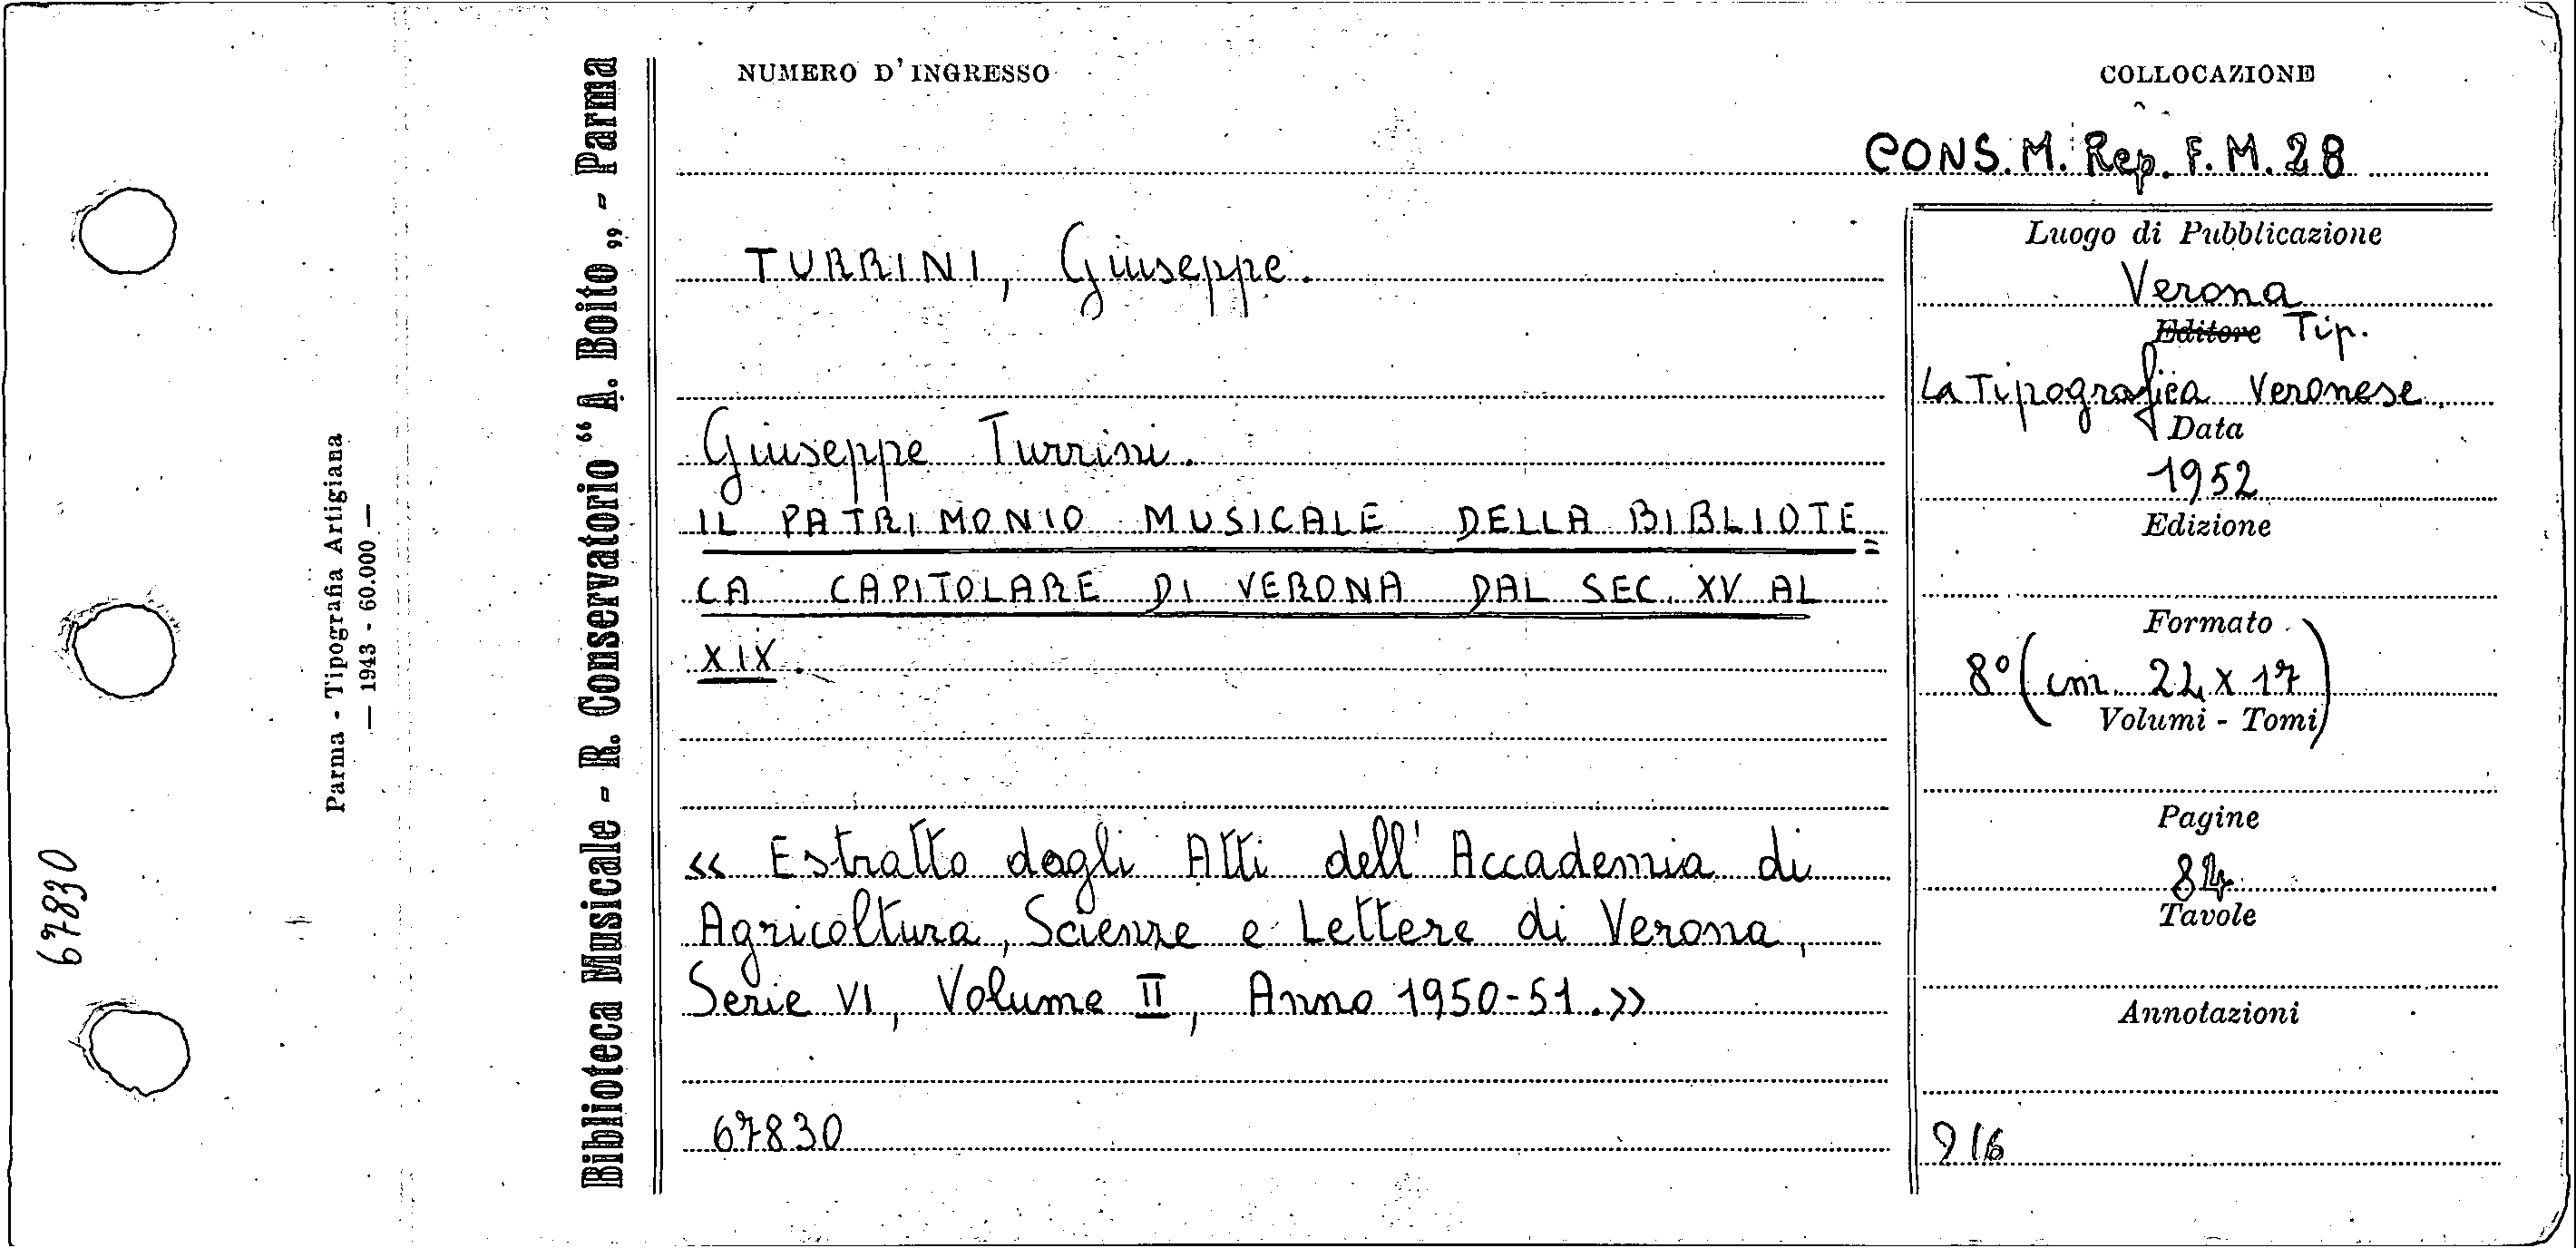 NUMERO D'INGRESSO
COLLOCAZIONE
CONS. M. Rep. F. M. 28
TURRINI, Giuseppe.
Giuseppe Turrini.
IL PATRIMONIO MUSICALE DELLA BIBLIOTE=
CA CAPITOLARE DI VERONA DAL SEC. XV AL
XIX.
« Estratto dagli Atti dell' Accademia di
Agricoltura, Scienze e Lettere di Verona,
Serie VI, Volume II, Anno 1950-51.»
67830
Luogo di Pubblicazione
Verona
Editore Tip.
La Tipografica Veronese.
Data
1952
Edizione
Formato
8° (cm. 24 x 17)
Volumi - Tomi
Pagine
84
Tavole
Annotazioni
Biblioteca Musicale - R. Conservatorio “ A. Boito „ - Parma
Parma - Tipografia Artigiana
— 1943 - 60.000 —
67830